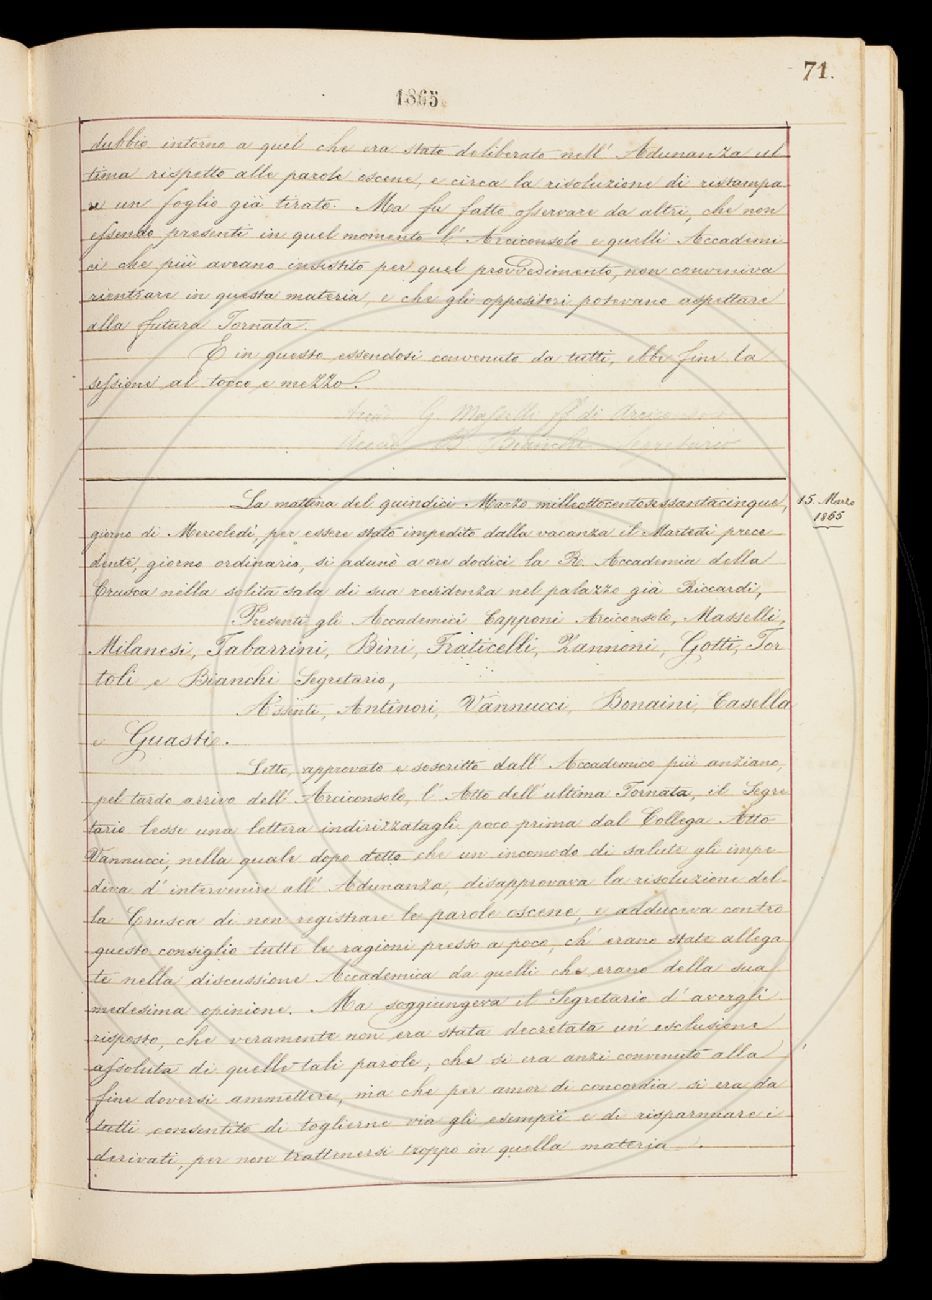 71.
1865.
dubbio intorno a quel che era stato deliberato nell' Adunanza ul
tima rispetto alle parole oscene, e circa la risoluzione di ristampa
re un foglio già tirato. Ma fu fatto osservare da altri, che non
essendo presenti in quel momento l' Arciconsolo e quelli Accademi
ci che più aveano insistito per quel provvedimento, non conveniva
rientrare in questa materia, e che gli oppositori potevano aspettare
alla futura Tornata.
E in questo essendosi convenuto da tutti, ebbe fine la
sessione al tocco e mezzo.
Accad. G. Masselli ff. di Arciconsolo
Accad. B. Bianchi Segretario
15 Marzo
1865
La mattina del quindici Marzo milleottocentosessantacinque,
giorno di Mercoledì, per essere stato impedito dalla vacanza il Martedì prece
dente, giorno ordinario, si adunò a ore dodici la R. Accademia della
Crusca nella solita sala di sua residenza nel palazzo già Riccardi,
Presenti gli Accademici Capponi Arciconsolo, Masselli,
Milanesi, Tabarrini, Bini, Fraticelli, Zannoni, Gotti, Tor
toli e Bianchi Segretario,
Assenti, Antinori, Vannucci, Bonaini, Casella
e Guasti.
Letto, approvato e soscritto dall' Accademico più anziano,
pel tardo arrivo dell' Arciconsolo, l' Atto dell' ultima Tornata, il Segre
tario lesse una lettera indirizzatagli poco prima dal Collega Atto
Vannucci, nella quale dopo detto che un incomodo di salute gli impe
diva d' intervenire all' Adunanza, disapprovava la risoluzione del-
la Crusca di non registrare le parole oscene, e adduceva contro
questo consiglio tutte le ragioni presso a poco, ch' erano state allega
te nella discussione Accademica da quelli che erano della sua
medesima opinione. Ma soggiungeva il Segretario d' avergli
risposto, che veramente non era stata decretata un' esclusione
assoluta di quelle tali parole, che si era anzi convenuto alla
fine doversi ammettere, ma che per amor di concordia si era da
tutti consentito di toglierne via gli esempii e di risparmiare i
derivati, per non trattenersi troppo in quella materia.